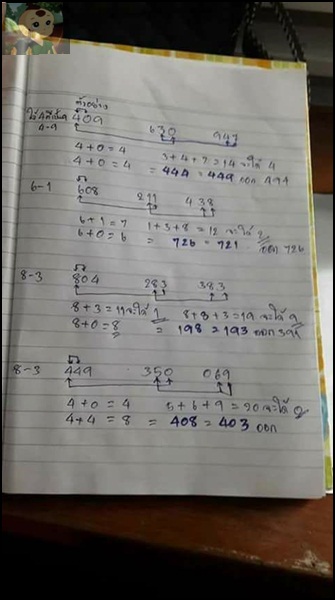 ตัวอย่าง
4-9 409 630 947
4+0=4 3+4+7=14 จะได้ 4
4+0=4 = 444 = 449 ออก 494
6-1 608 211 438
6+1=7 1+3+8=12 จะได้ 2
6+0=6 = 726 = 721 ออก 726
8-3 804 283 383
8+3=11 จะได้ 1 8+8+3=19 จะได้ 9
8+0=8 = 198 = 193 ออก 391
8-3 449 350 069
4+0=4 5+6+9=20 จะได้ 0
4+4=8 = 408 = 403 ออก